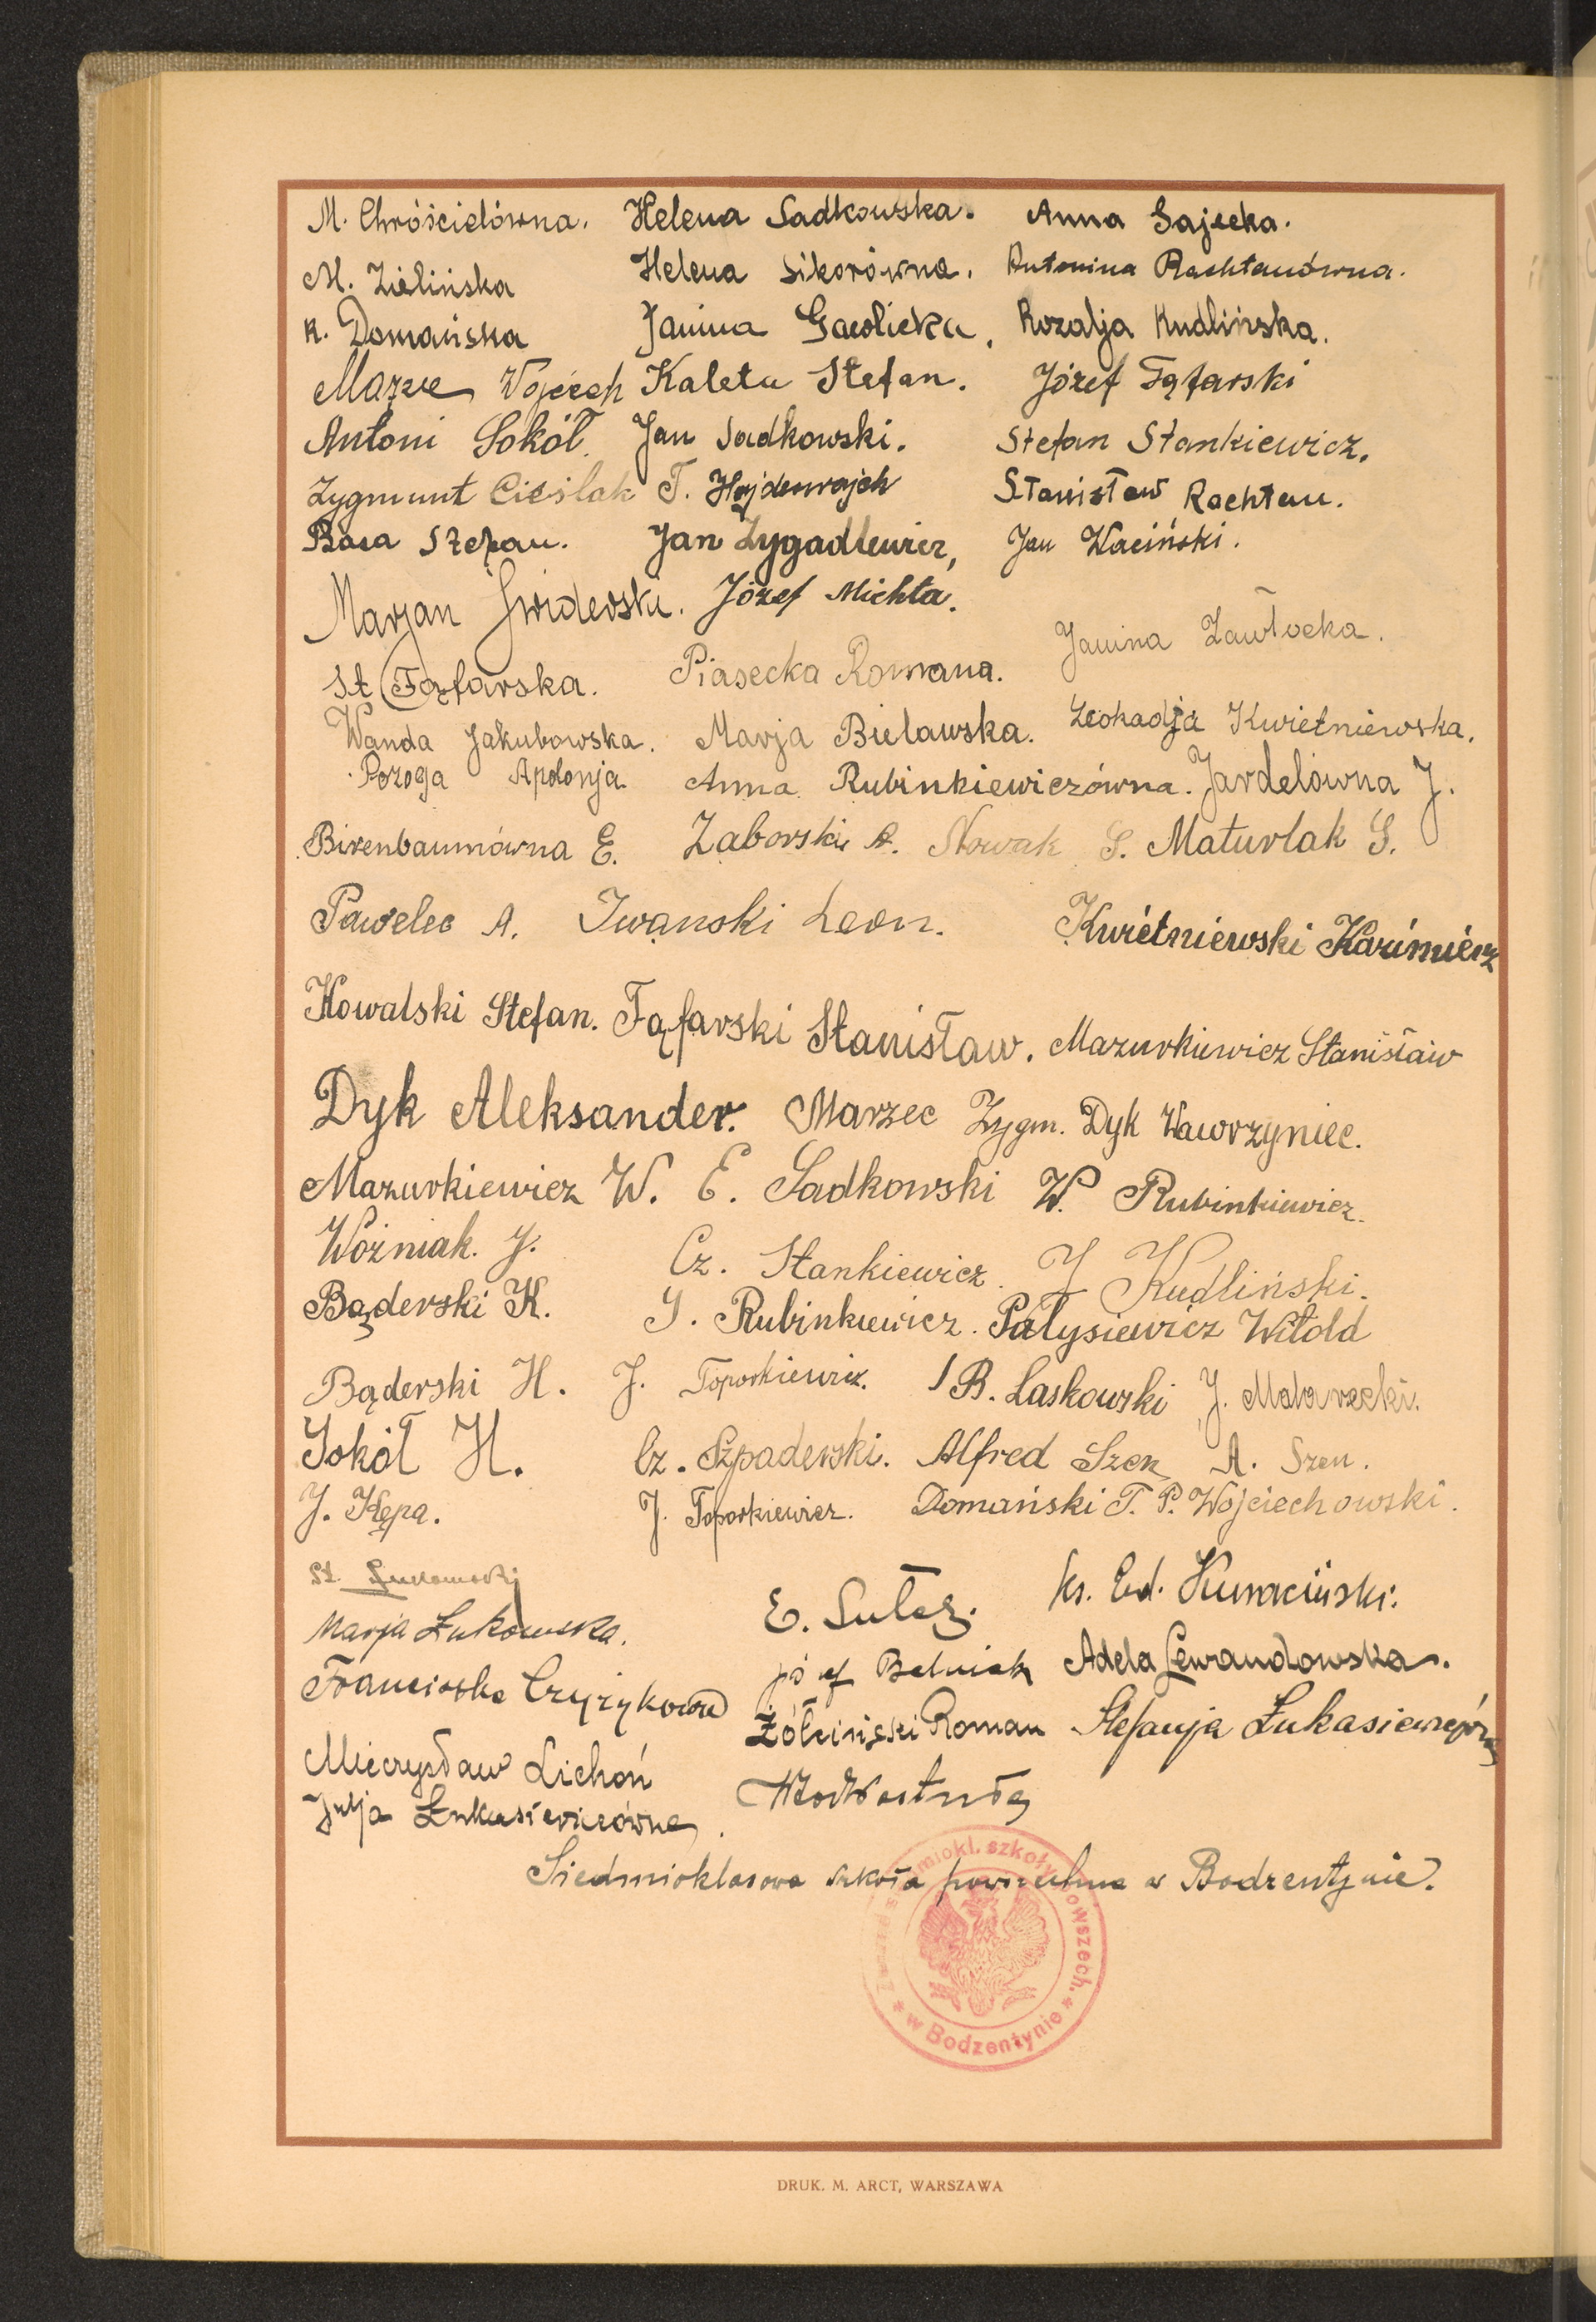 M. Chróścielówna. Helena Sadkowska. Anna Gajecka.
M. Zielińska Helena Sikorówna. Antonina Rachtanówna.
K. Domańska Janina Gawlicka, Rozalja Kudlińska.
Marzec Wojciech Kaleta Stefan. Józef Fąfarski
Antoni Sokół. Jan Sadkowski. Stefan Stankiewicz.
Zygmunt Cieślak T. Hajdenrajch Stanisław Rachtan.
Basa Stefan. Jan Zygadlewicz, Jan Waciński.
Marjan Świderski. Józef Michta.
St Fąfarska. Piasecka Romana. Janina Zawłocka.
Wanda Jakubowska. Marja Bielawska. Leokadja Kwietniewska.
Pozoga Apolonja. Anna Rubinkiewiczówna. Jardelówna J.
Birenbaumówna E. Zaborski A. Nowak S. Maturlak S.
Pawelec A. Iwanski Leon. Kwiétniewski Kazimierz
Kowalski Stefan. Fąfarski Stanisław. Mazurkiewicz Stanisław
Dyk Aleksander. Marzec Zygm. Dyk Wawrzyniec.
Mazurkiewicz W. E. Sadkowski W. Rubinkiewicz.
Woźniak. J. Cz. Stankiewicz. J Kudliński.
Bąderski K. S. Rubinkiewicz. Pałysiewicz Witold
Bąderski H. J. Toporkiewicz. B. Laskowski J. Malarecki.
Sokół H. Cz. Szpaderski. Alfred Szen A. Szen.
J. Kępa. J. Toporkiewicz. Domański T. P. Wojciechowski.
St.
Marja Żukowska. E. Sułez. ks. Ed. Kuraciński.
Franciszka Czyżykowa Adela Lewandowska.
Żółciński Roman Stefanja Łukasiewiczówna
Mieczysław Lichoń
Julja Łukasiewiczówna.
Siedmioklasowa szkoła powszechna w Bodzentynie.
siedmiokl. szkoły powszech. * w Bodzentynie *
DRUK. M. ARCT, WARSZAWA